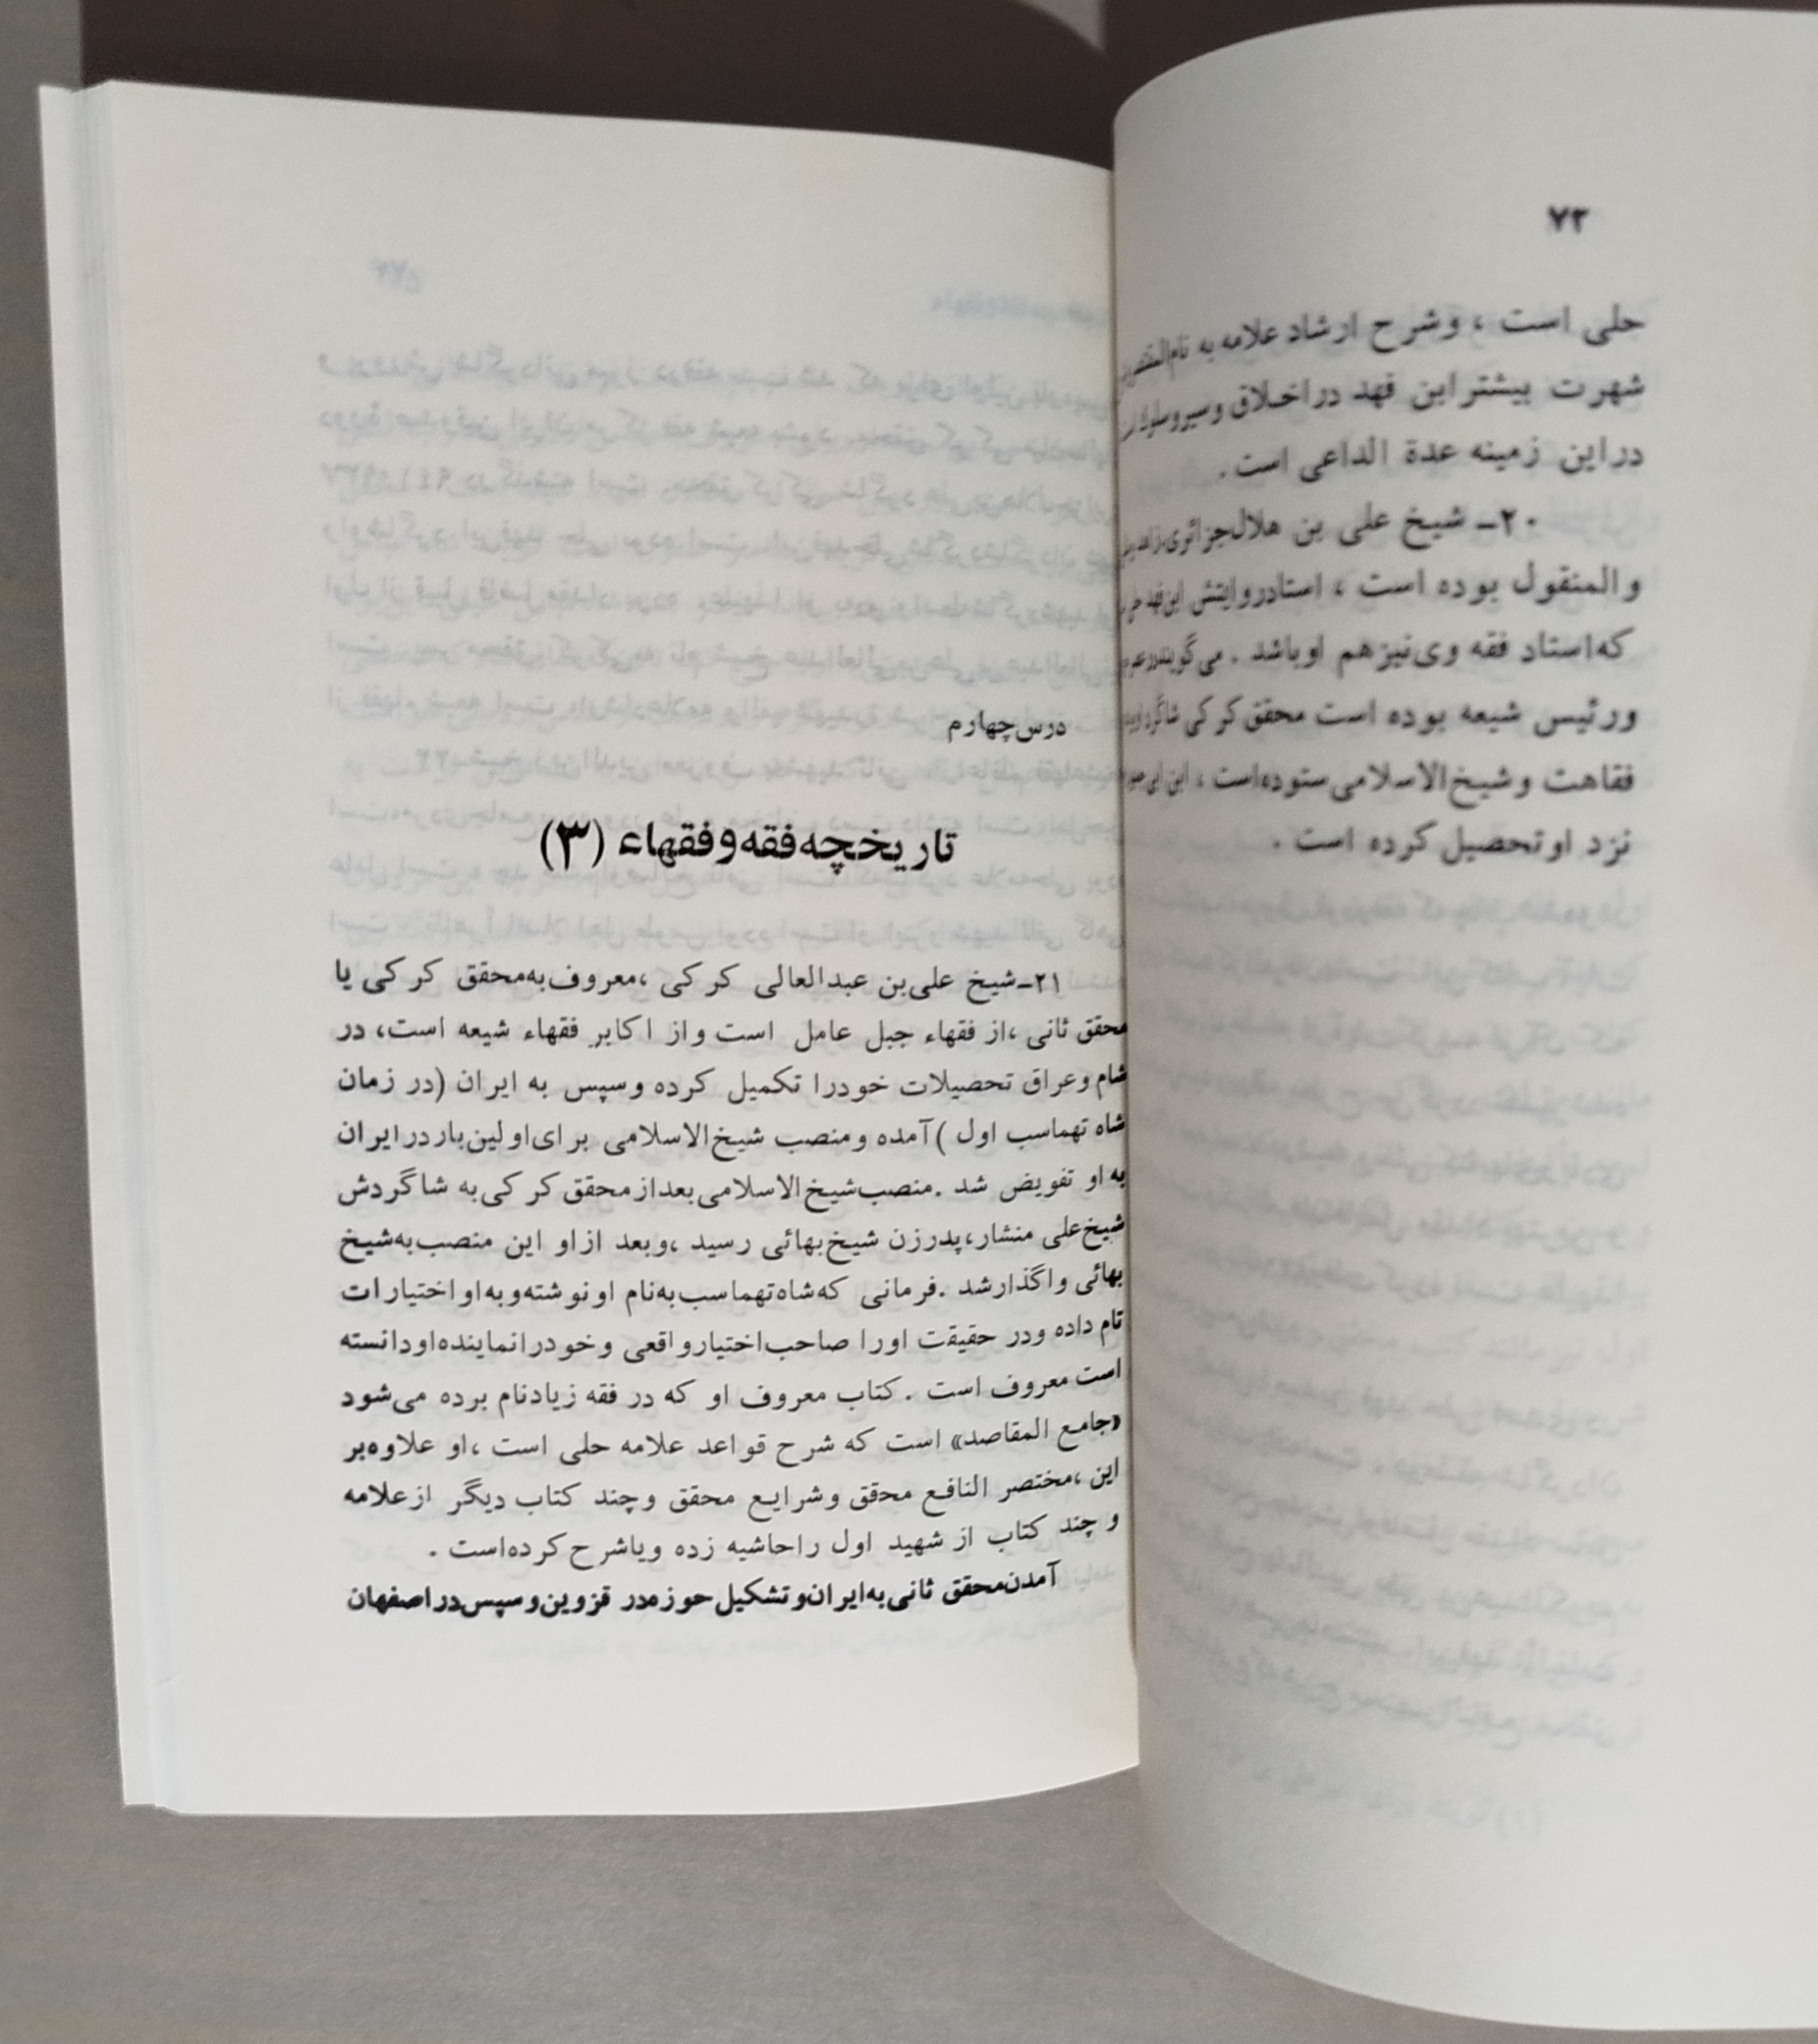 ۷۲
حلی است ، وشرح ارشاد علامه به نام
شهرت بیشترابن فهد دراخلاق وسیروسلوک
دراین زمینه عدة الداعی است .
۲۰ـ شیخ علی بن هلال جزائری،زاهد
والمنقول بوده است ، استادروایتش ابن فهد
که‌استاد فقه وی‌نیزهم اوباشد . می‌گویند
ورئیس شیعه بوده است محقق کرکی شاگرد
فقاهت وشیخ‌الاسلامی ستوده‌است ، ابن ابی
نزد اوتحصیل کرده است .
درس‌چهارم
تاریخچه‌فقه‌وفقهاء (۳)
۲۱ـشیخ علی‌بن عبدالعالی کرکی ،معروف‌به‌محقق کرکی یا
محقق ثانی ،از فقهاء جبل عامل است واز اکابر فقهاء شیعه است، در
شام وعراق تحصیلات خودرا تکمیل کرده وسپس به ایران (در زمان
شاه تهماسب اول )آمده ومنصب شیخ‌الاسلامی برای‌اولین‌باردرایران
به او تفویض شد .منصب‌شیخ‌الاسلامی‌بعدازمحقق‌کرکی‌به شاگردش
شیخ‌علی منشار،پدرزن شیخ‌بهائی رسید ،وبعد ازاو این منصب‌به‌شیخ
بهائی واگذارشد .فرمانی که‌شاه‌تهماسب‌به‌نام اونوشته‌وبه‌اواختیارات
تام داده ودر حقیقت اورا صاحب‌اختیارواقعی وخودرانماینده‌اودانسته
است معروف است .کتاب معروف او که در فقه زیادنام برده می‌شود
«جامع المقاصد» است که شرح قواعد علامه حلی است ،او علاوه‌بر
این ،مختصر النافع محقق وشرایع محقق وچند کتاب دیگر ازعلامه
و چند کتاب از شهید اول راحاشیه زده ویاشرح کرده‌است .
آمدن‌محقق ثانی‌به‌ایران‌وتشکیل‌حوزه‌در قزوین‌وسپس‌دراصفهان